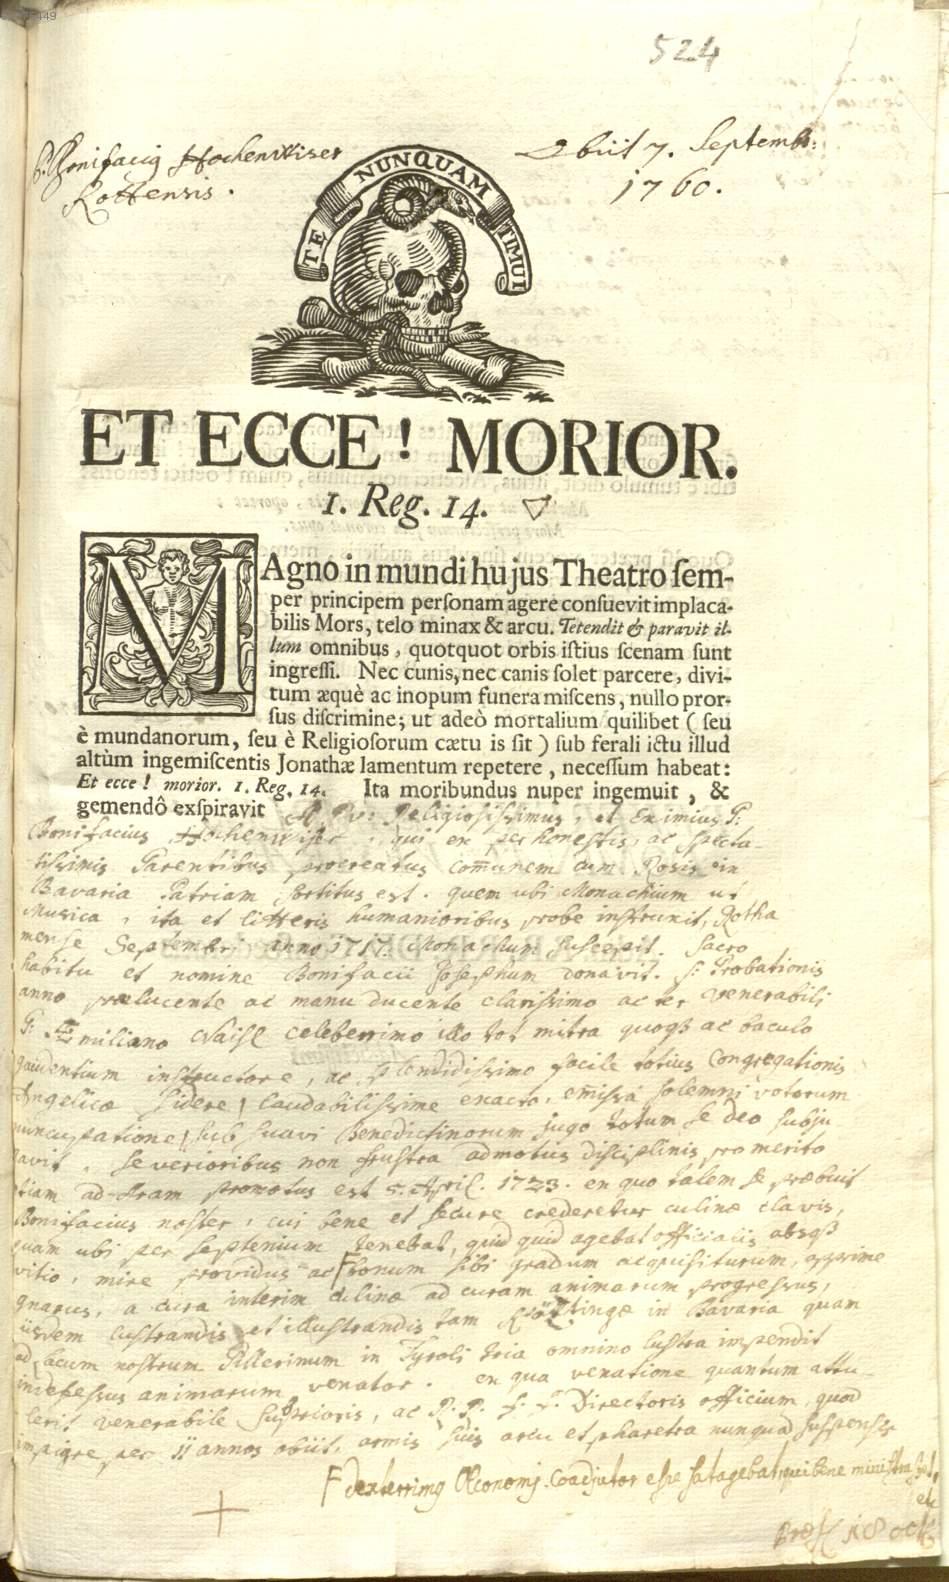 449
524
P. Bonifacius Hochenwiser
Rottensis.
Obiit 7. Septemb:
1760.
TE NUNQUAM TIMUI
ET ECCE! MORIOR.
1. Reg. 14.
MAgno in mundi hujus Theatro sem-
per principem personam agere consuevit implaca-
bilis Mors, telo minax & arcu. Tetendit & paravit il-
lum omnibus, quotquot orbis istius scenam sunt
ingressi. Nec cunis, nec canis solet parcere, divi-
tum æquè ac inopum funera miscens, nullo pror-
sus discrimine; ut adeò mortalium quilibet ( seu
è mundanorum, seu è Religiosorum cætu is sit ) sub ferali ictu illud
altùm ingemiscentis Jonathæ lamentum repetere, necessum habeat:
Et ecce! morior. 1. Reg. 14. Ita moribundus nuper ingemuit, &
gemendô exspiravit A. R. Religiosissimus, et Eximius P:
Bonifacius Hochenwiser, qui ex per honestis, ac specta-
tissimis Parentibus procreatus com̄unem cum Rosis in
Bavaria Patriam sortitus est. quem ubi Monachium ut
Musica, ita et litteris humanioribus probe instruxit, Rotha
mense Septembri anno 1717 Monachum suscepit. Sacro
habitu et nomine Bonifacii Josephum donavit. Probationis
anno prælucente ac manu ducente clarissimo ac ter venerabili
P: Æmiliano Naisl celeberrimo illo tot mitra quoq3 ac baculo
gaudentium instructore, ac splendidissimo facile totius Congregationis
Angelicæ Sidere / laudabilissime exacto, emissa solemni votorum
nuncupatione / sub suavi Benedictinorum jugo totum se Deo subju
gavit. Severioribus non frustra admotus disciplinis pro merito
etiam ad Aram promotus est 5. April. 1723. en quo talem se præbuit
Bonifacius noster, cui bene et secure crederetur culinæ clavis,
quam ubi per septenium tenebat, quid quid agebat officialis absq3
vitio, mire providus ac F bonum sibi gradum acquisiturum, apprime
gnarus, a cura interim culinæ ad curam animarum progressus,
iisdem lustrandis et illustrandis tam Köztingæ in Bavaria quam
ad lacum nostrum Pillerinum in Tyroli tria omnino lustra impendit
indefessus animarum venator. en qua venatione quantum attu-
lerit venerabile Supprioris, ac P. P. Directoris officium, quod
impigre per 11 annos obiit, armis suis arcu et pharetra nunquad suspensis
F dexterrimus Œconomi Coadjutor esse satagebat, qui bene ministra